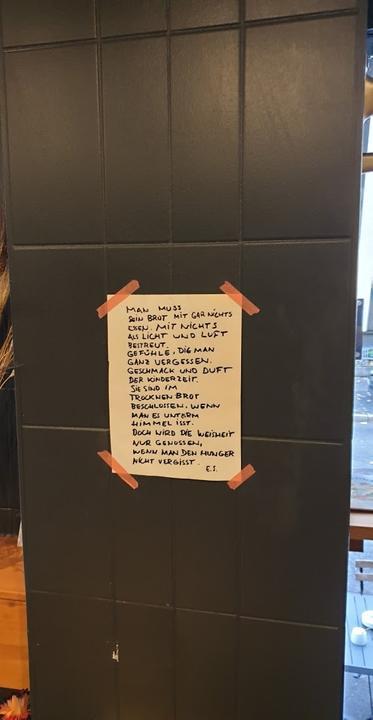 MAN MUSS
SEIN BROT MIT GAR NICHTS
ESSEN. MIT NICHTS
ALS LICHT UND LUFT
BESTREUT.
GEFÜHLE, DIE MAN
GANZ VERGESSEN.
GESCHMACK UND DUFT
DER KINDERZEIT.
SIE SIND IM
TROCKNEN BROT
BESCHLOSSEN, WENN
MAN ES UNTERM
HIMMEL ISST.
DOCH WIRD DIE WEISHEIT
NUR GENOSSEN,
WENN MAN DEN HUNGER
NICHT VERGISST.
E.S.